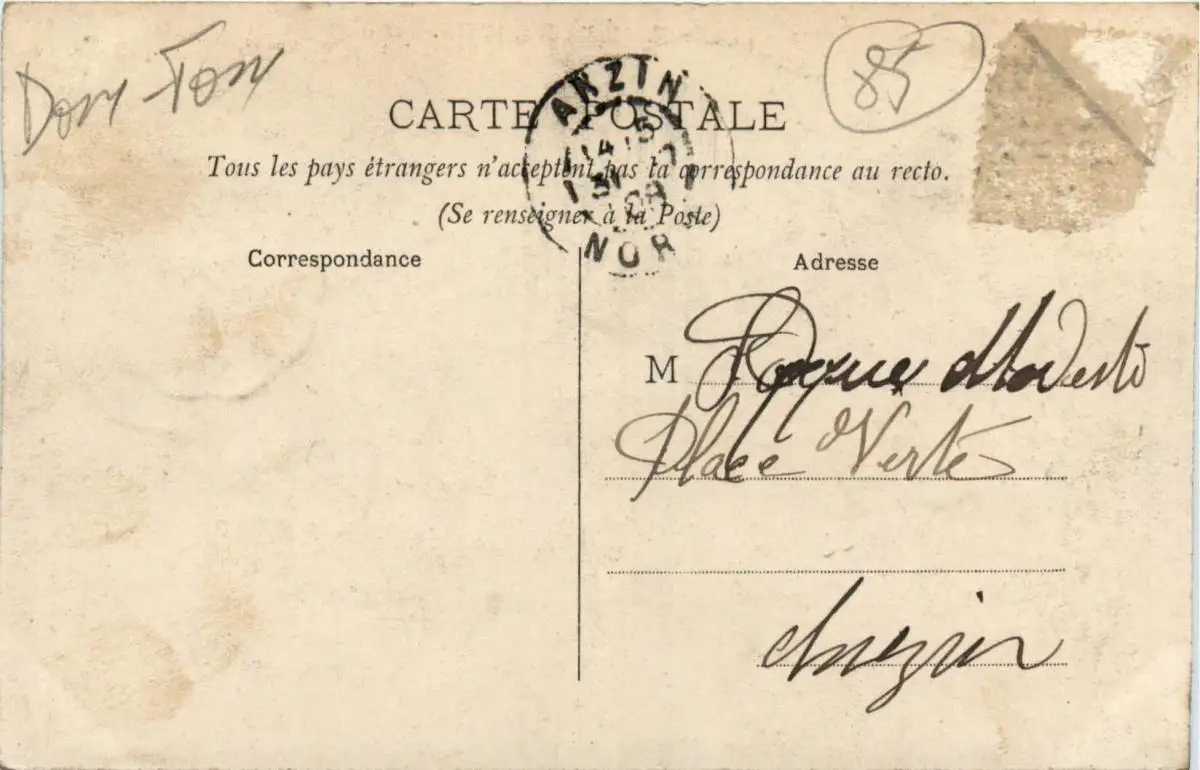 85
CARTE POSTALE
Tous les pays étrangers n'acceptent pas la correspondance au recto.
(Se renseigner à la Poste)
ANZIN
14 15
31
NOR
Correspondance
Adresse
M Modeste
Place Verte
Anzin